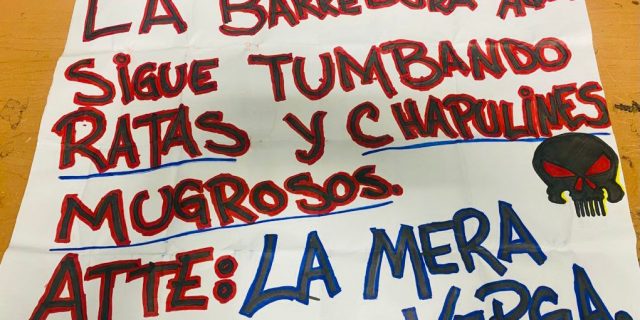 LA BARREDORA
SIGUE TUMBANDO
RATAS Y CHAPULINES
MUGROSOS.
ATTE: LA MERA
VERGA.